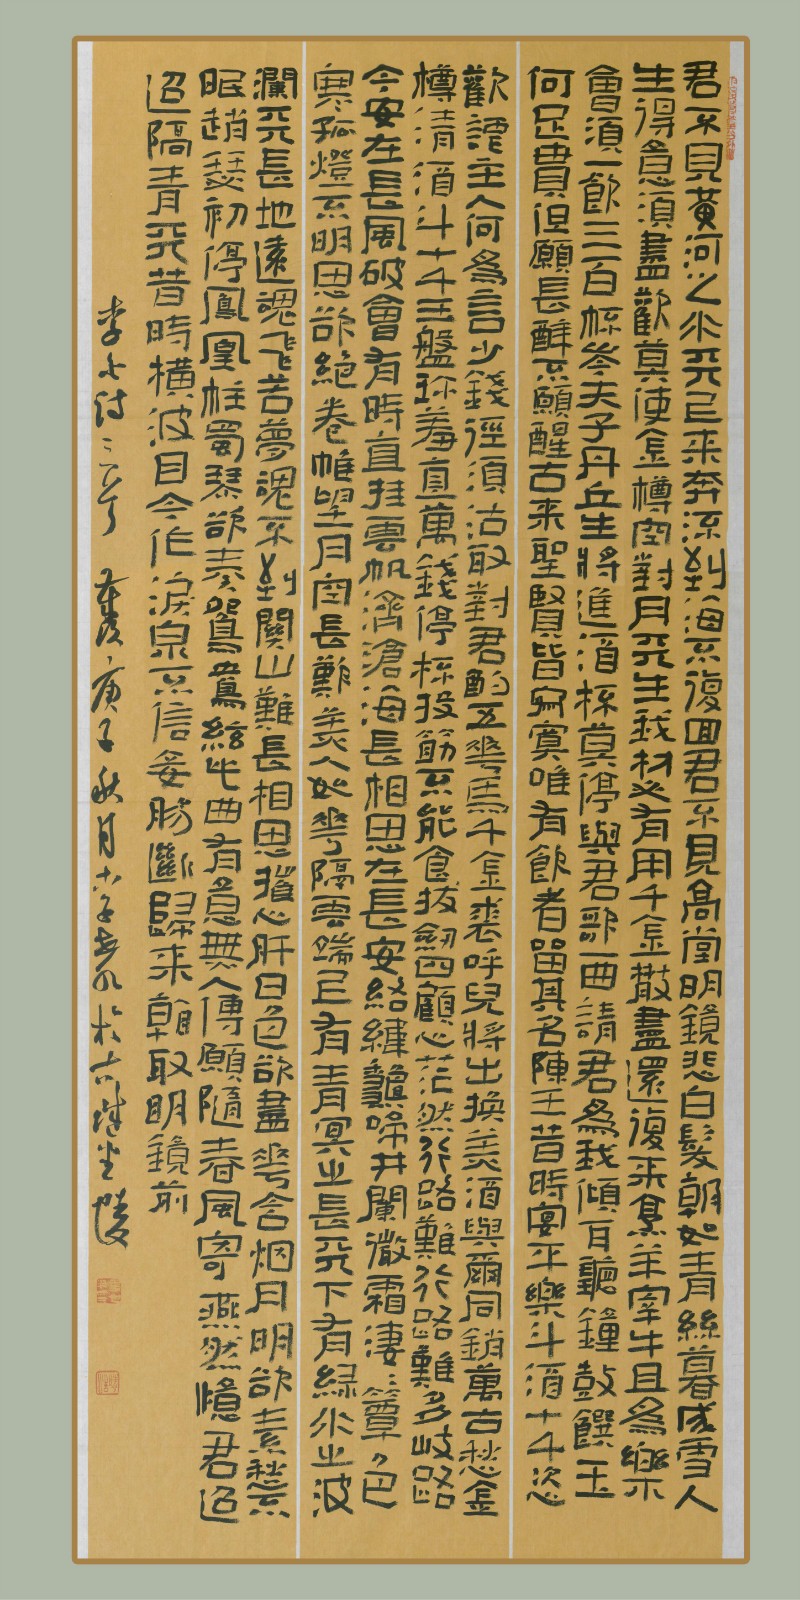 君不見黃河之水天上来奔流到海不復回君不見高堂明鏡悲白髮朝如青絲暮成雪人
生得意須盡歡莫使金樽空對月天生我材必有用千金散盡還復来烹羊宰牛且為樂
會須一飲三百杯岑夫子丹丘生將進酒杯莫停與君歌一曲請君為我傾耳聽鐘鼓饌玉
何足貴但願長醉不願醒古来聖賢皆寂寞唯有飲者留其名陳王昔時宴平樂斗酒十千恣
歡謔主人何為言少錢徑須沽取對君酌五花馬千金裘呼兒將出換美酒與爾同銷萬古愁金
樽清酒斗十千玉盤珍羞直萬錢停杯投筯不能食拔劍四顧心茫然行路難行路難多岐路
今安在長風破會有時直挂雲帆濟滄海長相思在長安絡緯秋啼井闌微霜淒〻簟色
寒孤燈不明思欲絕卷帷望月空長歎美人如花隔雲端上有青冥之長天下有綠水之波
瀾天長地遠魂飛苦夢魂不到關山難長相思摧心肝日色欲盡花含烟月明欲素愁不
眠趙瑟初停鳳凰柱蜀琴欲奏鴛鴦絃此曲有意無人傳願隨春風寄燕然憶君迢
迢隔青天昔時橫波目今作淚泉不信妾腸斷歸来看取明鏡前
李白詩三首 歲庚子秋月